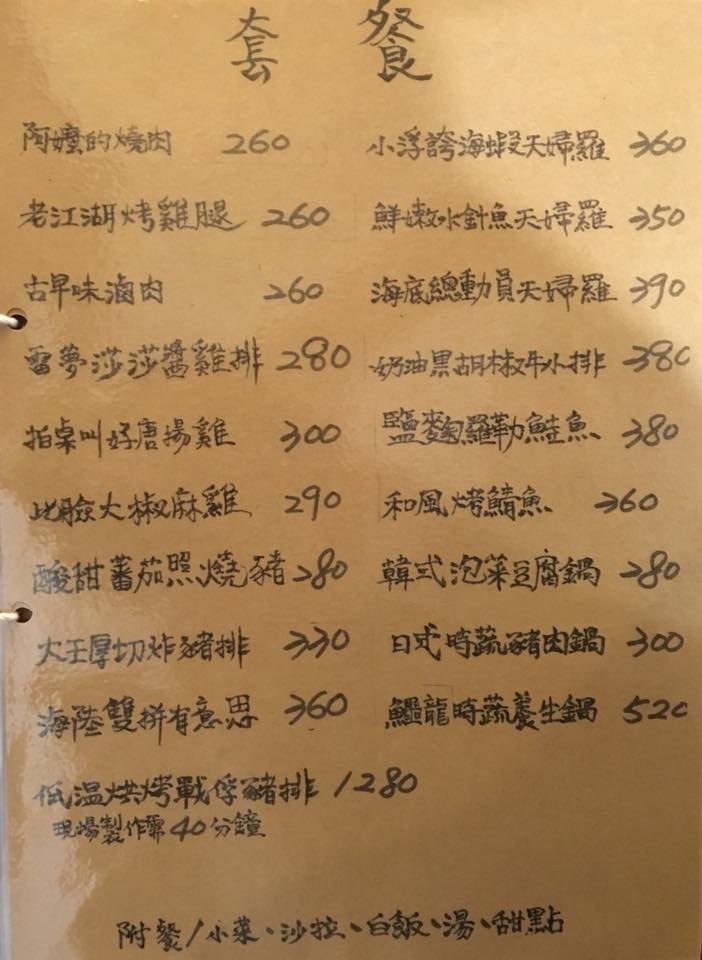 套餐
阿嬤的燒肉 260
老江湖烤雞腿 260
古早味滷肉 260
雷夢莎莎醬雞排 280
拍桌叫好唐揚雞 300
比臉大椒麻雞 290
酸甜蕃茄照燒豬 280
大王厚切炸豬排 330
海陸雙拼有意思 360
低温烘烤戰俘豬排 1280
現場製作需40分鐘
小浮誇海蝦天婦羅 360
鮮嫩水針魚天婦羅 350
海底總動員天婦羅 390
奶油黑胡椒牛小排 380
鹽麴羅勒鮭魚 380
和風烤鯖魚 360
韓式泡菜豆腐鍋 280
日式時蔬豬肉鍋 300
鱷龍時蔬養生鍋 520
附餐/小菜、沙拉、白飯、湯、甜點